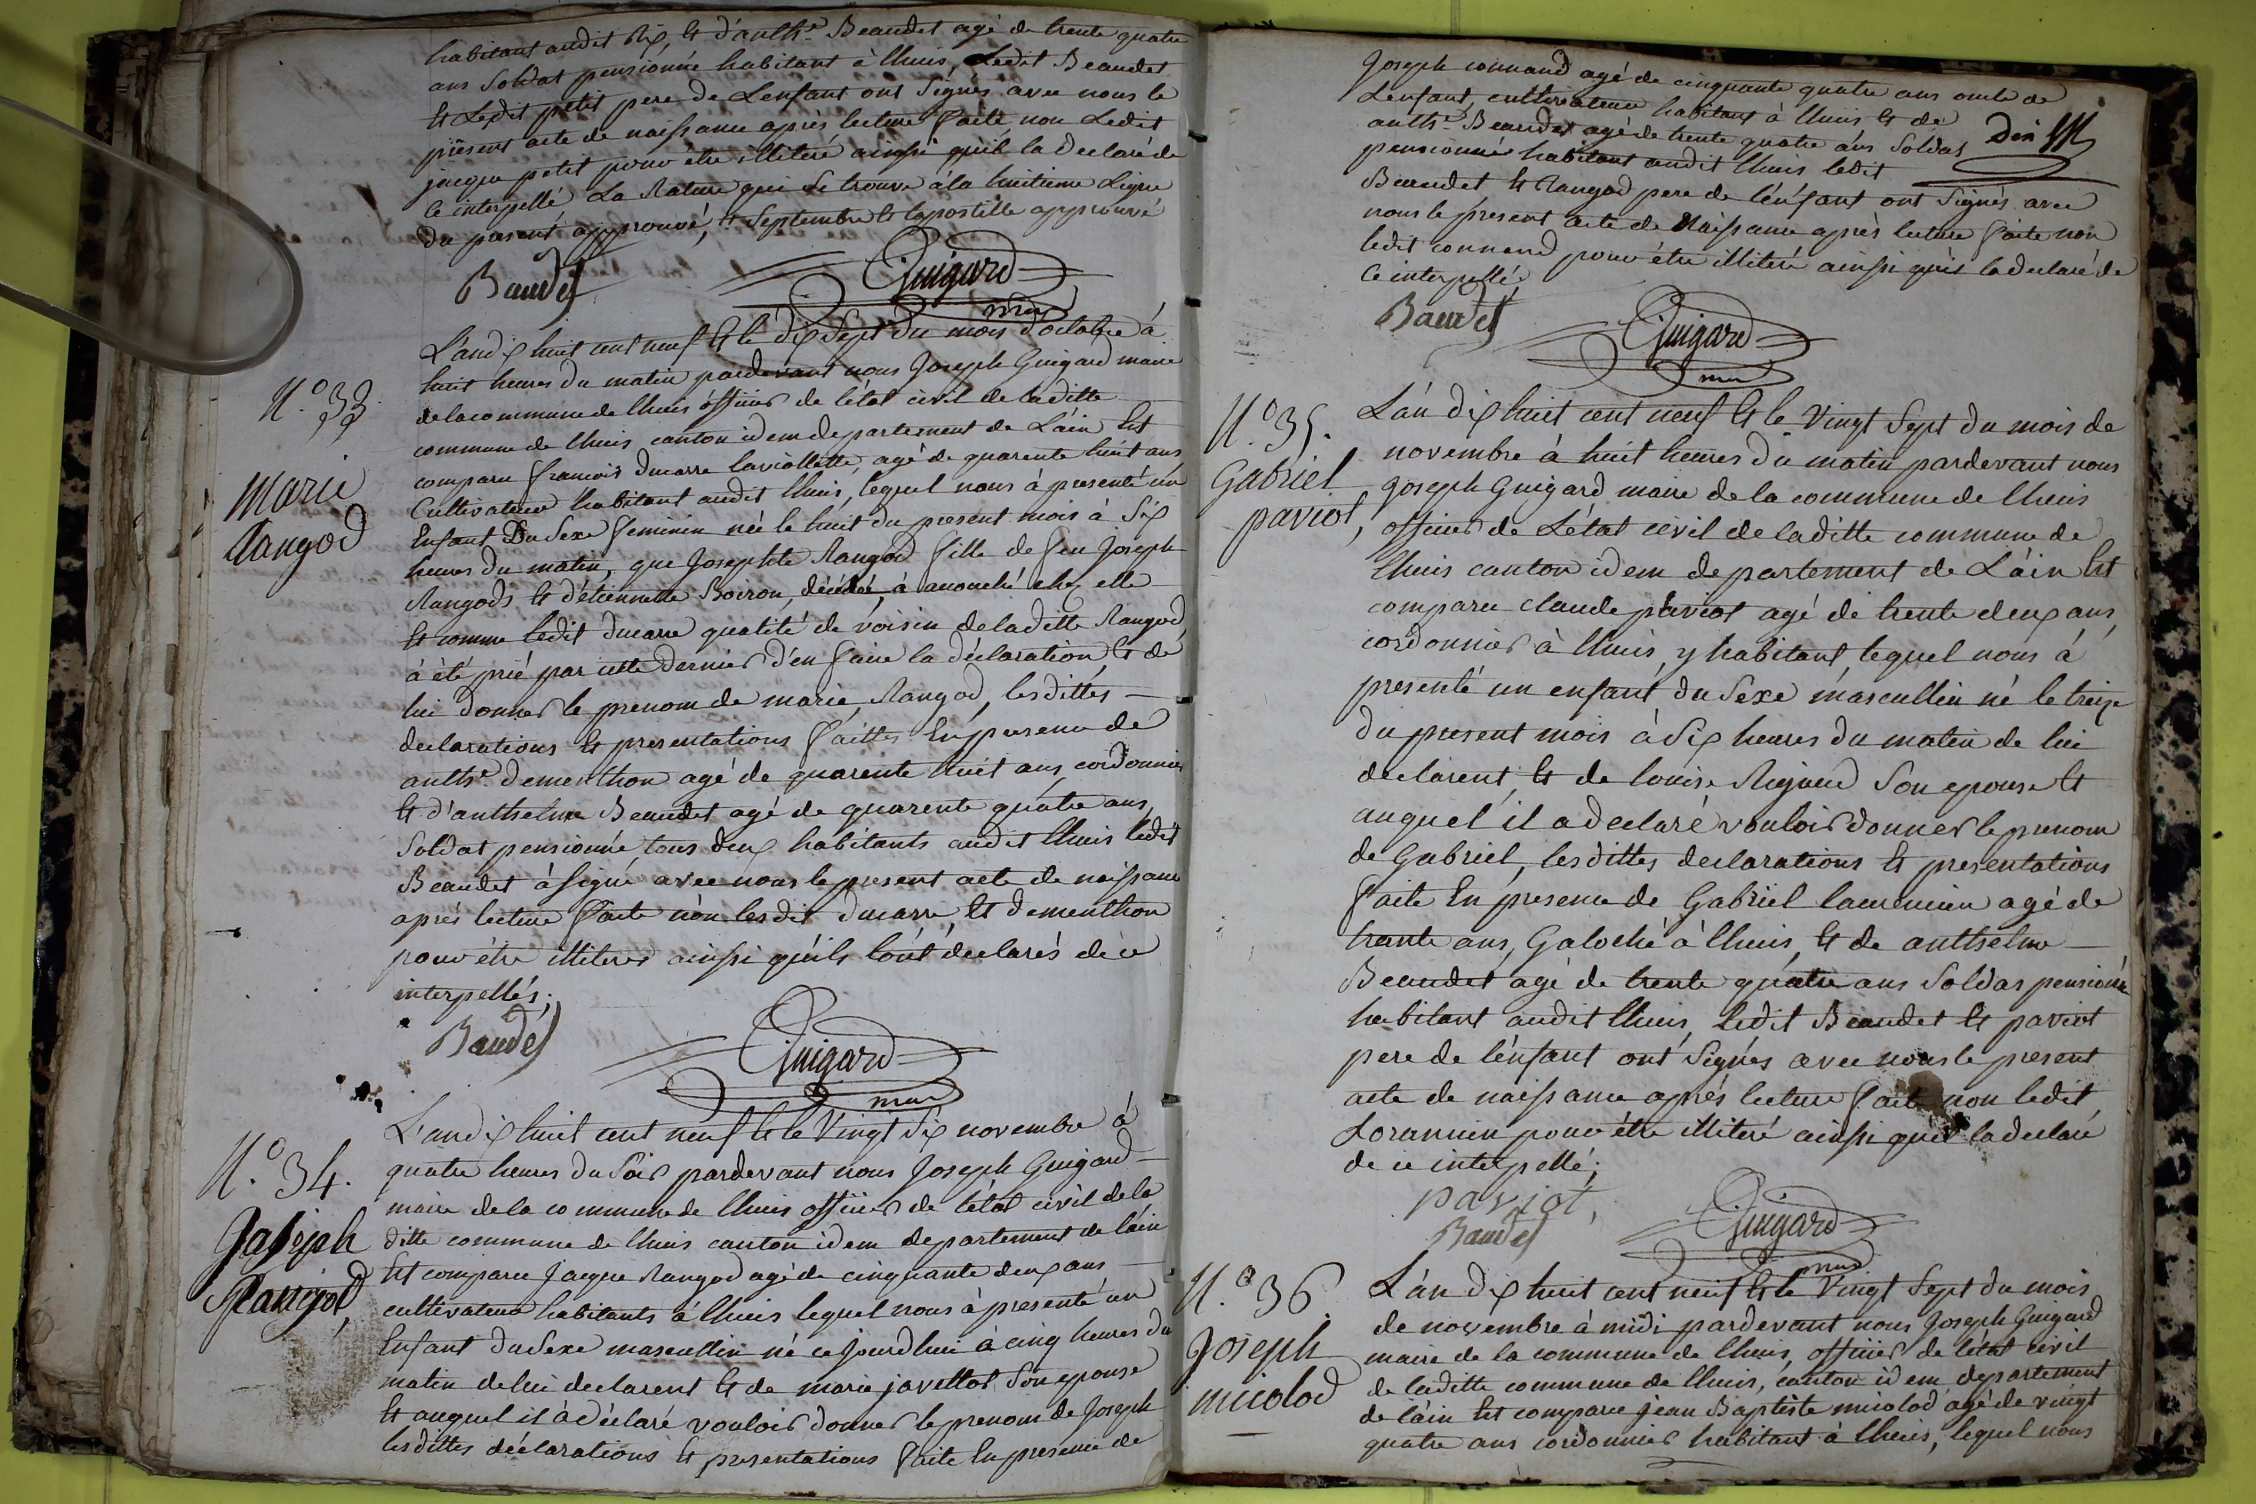 habitant audit Rix, et d'anthe Beaudet agé de trente quatre
ans Soldat pensionné habitant à lhuis, Ledit Beaudet
et Ledit petit pere de Lenfant ont Signés avec nous le
présent acte de naissance après lecture faite non Ledit
jacque petit pour être illiteré ainsi qu'il la declaré de
ce interpellé La Rature qui se trouve à la huitieme Ligne
du present approuvé, et Septembre et lapostille approuvé
Baudet Guigard
mre
N.º 33.
Marie
Rangod
L'an dix huit cent neuf et le dix Sept du mois d'octobre à
huit heures du matin pardevant nous Joseph Guigard maire
de la commune de lhuis officier de l'état civil de laditte
commune de lhuis canton idem departement de L'ain Est
comparu francois ducarre laviollette, agé de quarente huit ans
Cultivateur habitant audit lhuis, lequel nous à presenté un
Enfant Du Sexe feminin née le huit du present mois à Six
heures du matin, que Josephte Rangod fille de feu Joseph
Rangods et d'étiennette Boiron, décédée, à accouché chez elle
Et comme ledit ducarre qualité de voisin de laditte Rangod
à été prié par cette dernier d'en faire la déclaration, et de
lui donner le prenom de marie, Rangod, lesdittes
declarations et presentations faittes En presence de
anthe demerthon agé de quarente huit ans, cordonnier
Et d'anthelme Beaudet agé de quarente quatre ans,
Soldat pensionné, tous deux habitants audit lhuis ledit
Beaudet à signé avec nous le present acte de naissance
après lecture faite non lesdit ducarre, et dementhon
pour être illiterés ainsi qu'ils l'ont declarés de ce
interpellés;
Baudet Guigard
mre
N.º 34.
Joseph
Rangod,
L'an dix huit cent neuf et le Vingt Six novembre à
quatre heures du Soir pardevant nous Joseph Guigard
maire de la commune de lhuis officier de l'état civil de la
ditte commune de lhuis canton idem departement de l'ain
Est comparu Jacque Rangod agé de cinquante deux ans
cultivateur habitants à lhuis lequel nous à presenté un
Enfant du Sexe mascullin né ce jourdhui à cinq heures du
matin de lui declarent et de marie javellot Son epouse
Et auquel il à déclaré vouloir donner le prenom de Joseph
lesdittes déclarations et presentations faite En presence de
Joseph connand agé de cinquante quatre ans oncle de
Lenfant, cultivateur habitant à lhuis et de
anthe Beaudet agé de trente quatre ans Soldat
pensionné habitant audit lhuis ledit
Beaudet et Rangod pere de l'énfant ont Signés avec
nous le present acte de Naissance après lecture faite non
ledit connand pour être illiteré ainsi quil la declaré de
ce interpellé.
Baudet Guigard
mre
N.º 35.
Gabriel
paviot,
L'an dix huit cent neuf et le Vingt Sept du mois de
novembre à huit heures du matin pardevant nous
joseph Guigard maire de la commune de lhuis
officier de L'état civil de laditte commune de
lhuis canton idem departement de L'ain Est
comparu claude paviot agé de trente deux ans,
cordonnier à lhuis, y habitant, lequel nous à
presenté un enfant du Sexe mascullin né le treize
du present mois à Six heures du matin de lui
declarent, et de louise Son epouse et
auquel il a declaré vouloir donner le prenom
de Gabriel, lesdittes declarations et presentations
faite En presence de Gabriel agé de
trente ans, Galoché à lhuis, et de anthelme
Beaudet agé de trente quatre ans Soldat pensionné
habitant audit lhuis, ledit Beaudet et paviot
pere de l'énfant ont Signés avec nous le present
acte de naissance après lecture faite non ledit
pour être illiteré ainsi quil la declaré
de ce interpellé;
paviot,
Baudet Guigard
mre
N.º 36.
Joseph
micolod
L'an dix huit cent neuf et le Vingt Sept du mois
de novembre à midi pardevant nous Joseph Guigard
maire de la commune de lhuis, officier de l'état civil
de laditte commune de lhuis, canton idem departement
de l'ain Est comparu jean Baptiste micolod agé de vingt
quatre ans cordonnier habitant à lhuis, lequel nous